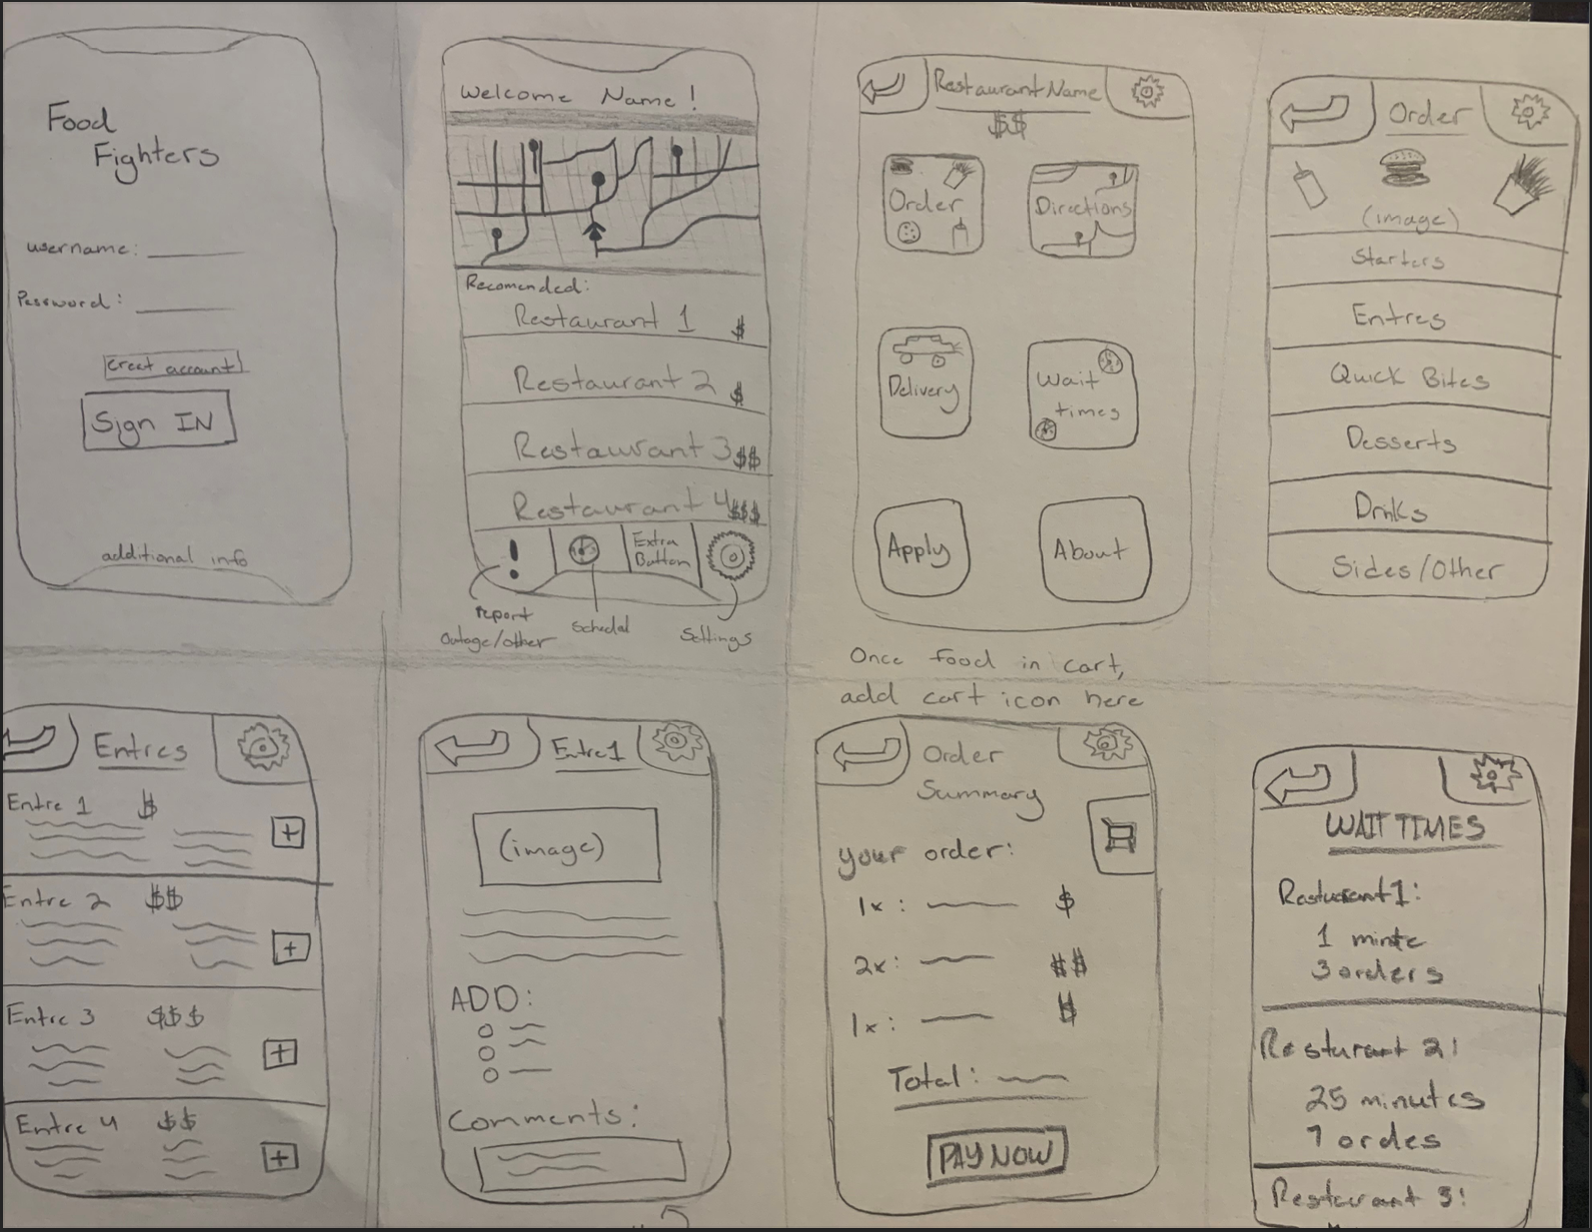 Food
Fighters
username:
Password:
creat account
Sign IN
additional info
Welcome Name!
Recomended:
Restaurant 1 $
Restaurant 2 $
Restaurant 3 $$
Restaurant 4 $$$
!
Extra
Button
report
outage/other
Schedal
Settings
Restaurant Name
$$
Order
Directions
Delivery
Wait
times
Apply
About
Order
(image)
Starters
Entres
Quick Bites
Desserts
Drnks
Sides/Other
Entres
Entre 1 $
+
Entre 2 $$
+
Entre 3 $$$
+
Entre 4 $$
+
Entre 1
(image)
ADD:
Comments:
Once food in cart,
add cart icon here
Order
Summary
your order:
1x: $
2x: $$
1x: $
Total:
PAY NOW
WAIT TIMES
Restuarant 1:
1 minte
3 orders
Resturart 2:
25 minutes
7 ordes
Restaurant 3: